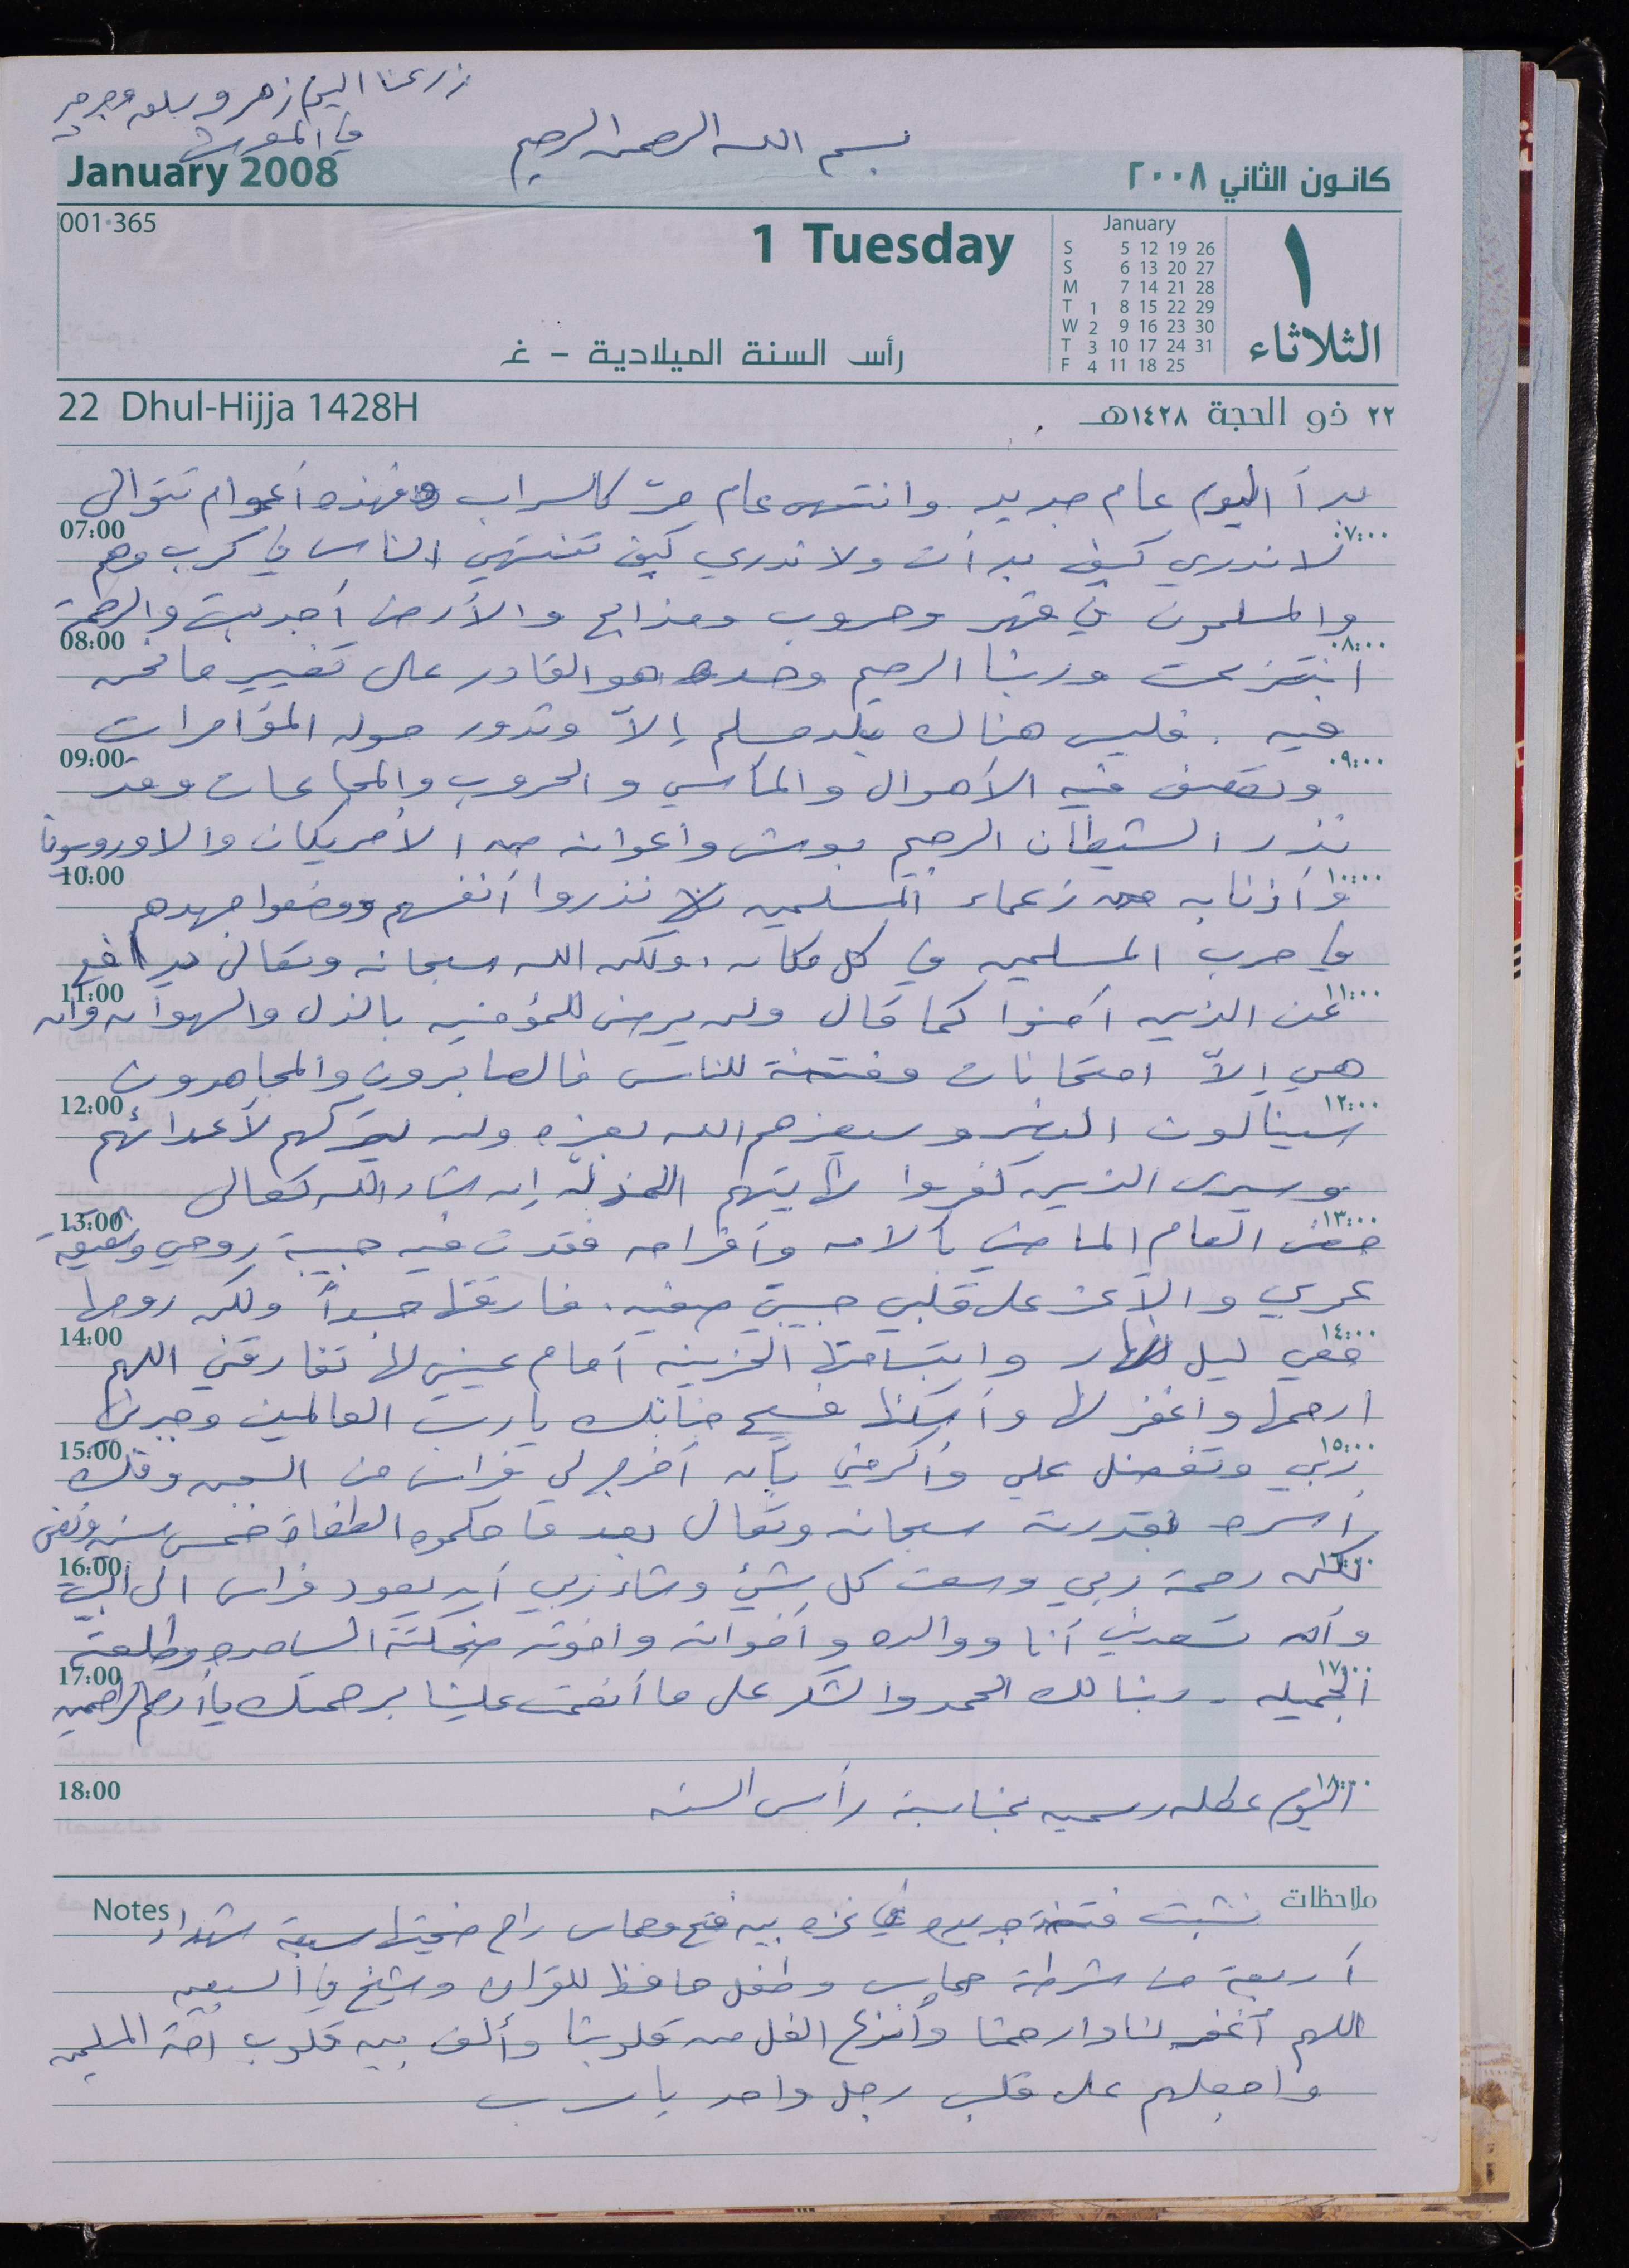 زرعنا اليوم زهر وسلق وجرجير
في المعرش
بسم الله الرحمن الرحيم
January 2008
كانون الثاني ٢٠٠٨
001•365
1 Tuesday
January
S 5 12 19 26
S 6 13 20 27
M 7 14 21 28
T 1 8 15 22 29
W 2 9 16 23 30
T 3 10 17 24 31
F 4 11 18 25
١
الثلاثاء
رأس السنة الميلادية - غ
22 Dhul-Hijja 1428H
٢٢ ذو الحجة ١٤٢٨هـ
بدأ اليوم عام جديد وانتهى عام مرّ كالسراب فهذه أعوام تتوالى
07:00 ٠٧:٠٠
لا ندري كيف بدأت ولا ندري كيف تنتهي الناس في كرب وهم
والمسلمون في قهر وحروب ومذابح والأرض أجدبت والرحمة
08:00 ٠٨:٠٠
انتزعت وربنا الرحيم وحده هو القادر على تغيير ما نحن
فيه . فليس هناك بلد مسلم إلاّ وتدور حوله المؤامرات
09:00 ٠٩:٠٠
وتعصف فيه الأهوال والمآسي والحروب والمجاعات وقد
نذر الشيطان الرجيم بوش وأعوانه من الأمريكان والاوروبيون
10:00 ١٠:٠٠
وأذنابه من زعماء المسلمين نذروا أنفسهم ووضعوا جهدهم
في حرب المسلمين في كل مكان . ولكن الله سبحانه وتعالى يدافع
11:00 ١١:٠٠
عن الذين آمنوا كما قال ولن يرضى للمؤمنين بالذل والهوان وان
هي إلاّ امتحانات وفتنة للناس فالصابرون والمجاهدون
12:00 ١٢:٠٠
سينالون النصر وسيعزهم الله بعزه ولن يتركهم لأعدائهم
وسيرى الذين كفروا المذلة إن شاء الله تعالى
13:00 ١٣:٠٠
مضى العام الماضي بآلامه وأفراحه فقدت فيه حبيبة روحي وشقيقة
عمري والأعز على قلبي حبيبتي صفيه . فارقتها جسداً ولكن روحها
14:00 ١٤:٠٠
معي ليل نهار وابتسامتها الحزينه أمام عيني لا تفارقني اللهم
ارحمها واغفر لها وأسكنها فسيح جناتك يا رب العالمين وجبرني
15:00 ١٥:٠٠
ربي وتفضل علي وأكرمني بأن أخرج لي فراس من السجن وفك
أسره بقدرته سبحانه وتعالى بعد ما حكموه الطغاة خمس سنه ونصف
16:00 ١٦:٠٠
لكن رحمة ربي وسعت كل شيئ وشاء ربي أن يعود فراس الى البيت
وأن تسعدني أنا ووالده وأخوانه واخوته ضحكته الساحره وطلعته
17:00 ١٧:٠٠
الجميله . ربنا لك الحمد والشكر على ما أنعمت علينا برحمتك يا أرحم الراحمين
18:00 ١٨:٠٠
اليوم عطله رسميه بمناسبة رأس السنه
Notes ملاحظات
نشبت فتنة جديده في غزه بين فتح وحماس راح ضحيتها سبعة شهداء
أربعة من شرطة حماس وطفل حافظ للقرآن وشيخ في السبعين
اللهم أغفر لنا وارحمنا وأنزع الغل من قلوبنا وألف بين قلوب أمة المسلمين
واجعلهم على قلب رجل واحد يا رب